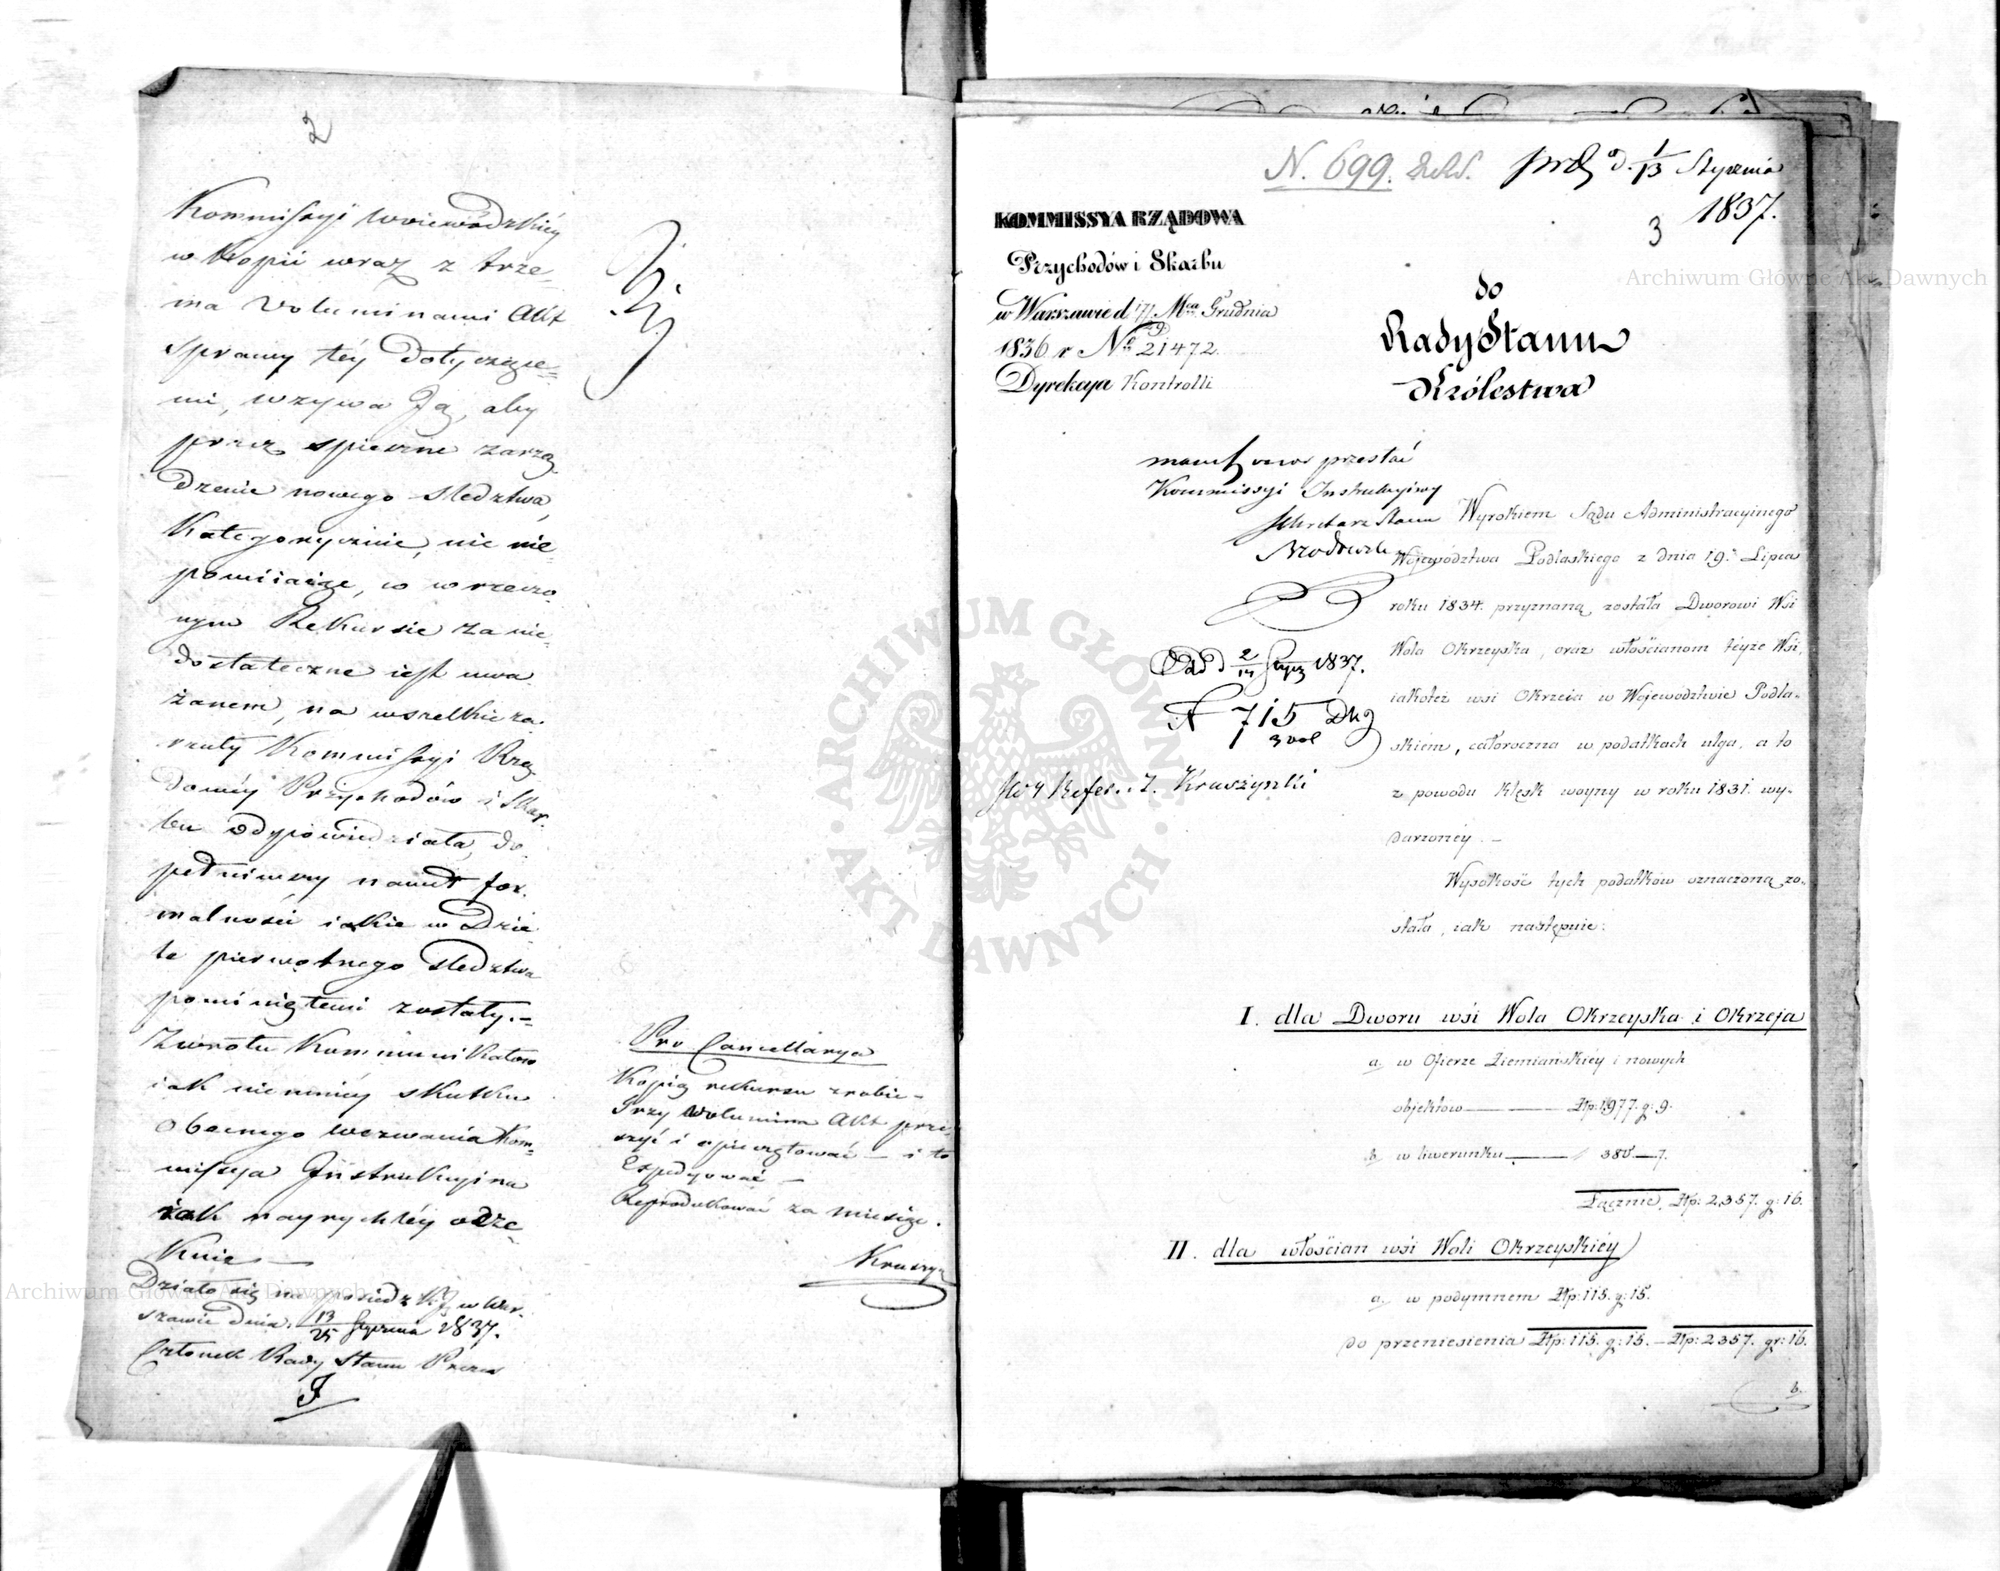 2
Kommissyi Woiewódzkiéy
w Kopii wraz z trze-
ma Voluminami Akt
sprawy téy dotyczące-
mi, wzywa Ją, aby
przez spieszne zarzą-
dzenie nowego śledztwa,
Kategorycznie, nic nie-
pomiiaiąc, co w rzeczo-
nym Rekursie za nie-
dostateczne iest uwa-
żanem, na wszelkie za-
rzuty Kommissyi Rzą-
dowéy Przychodów i Skar-
bu odpowiedziała, do-
pełniwszy nawet for-
malności iakie w Dzie-
le pierwotnego śledztwa
pominiętemi zostały.-
Zwrotu Kommunikatów
iak niemniéy skutku
obecnego wezwania Kom-
missya Instrukcyina
iak nayrychléy ocze-
kuie
Działo się na posiedz. KJ. w War-
szawie dnia 13/25 Stycznia 1837.
Członek Rady Stanu Prezes
J
Pro Cancellarya
Kopią rekursu zrobić -
Trzy volumina Akt prze-
szyć i opieczętować - i to
Expedyować -
Reprodukować za miesiąc.
Kruszyn
N. 699. d. 1/13 Stycznia
1837.
3
KOMMISSYA RZĄDOWA
Przychodów i Skarbu
w Warszawie d 17/29 Mca Grudnia
1836 r No 21472.
Dyrekcya Kontrolli
do
Rady Stanu
Królestwa
przesłać
Kommissyi Instrukcyiney
Sekretarz Stanu
Wyrokiem Sądu Administracyinego
Województwa Podlaskiego z dnia 19. Lipca
roku 1834. przyznaną została Dworowi Wsi
Wola Okrzeyska, oraz włościanom teyże Wsi,
iakoteż wsi Okrzeia w Województwie Podla-
skiém, całoroczna w podatkach ulga, a to
z powodu klęsk woyny w roku 1831. wy-
darzonéy. -
Wysokość tych podatków oznaczoną zo-
stała, iak następuie:
Odd d 2/14 Stycz 1837.
N 715 Dkg
3 vol
Refer. J. Kruszyński
I. dla Dworu wsi Wola Okrzeyska i Okrzeja
a. w Ofierze Ziemiańskiéy i nowych
objektów Złp: 1,977. g: 9.
b. w liwerunku 380 - 7.
Łącznie, Złp: 2,357. g: 16.
II. dla włościan wsi Woli Okrzeyskiéy
a. w podymném Złp: 115. g: 15.
do przeniesienia Złp: 115. g: 15. - Złp: 2357. gr: 16.
b.
Archiwum Główne Akt Dawnych
Archiwum Główne Akt Dawnych
ARCHIWUM GŁÓWNE · AKT DAWNYCH ·